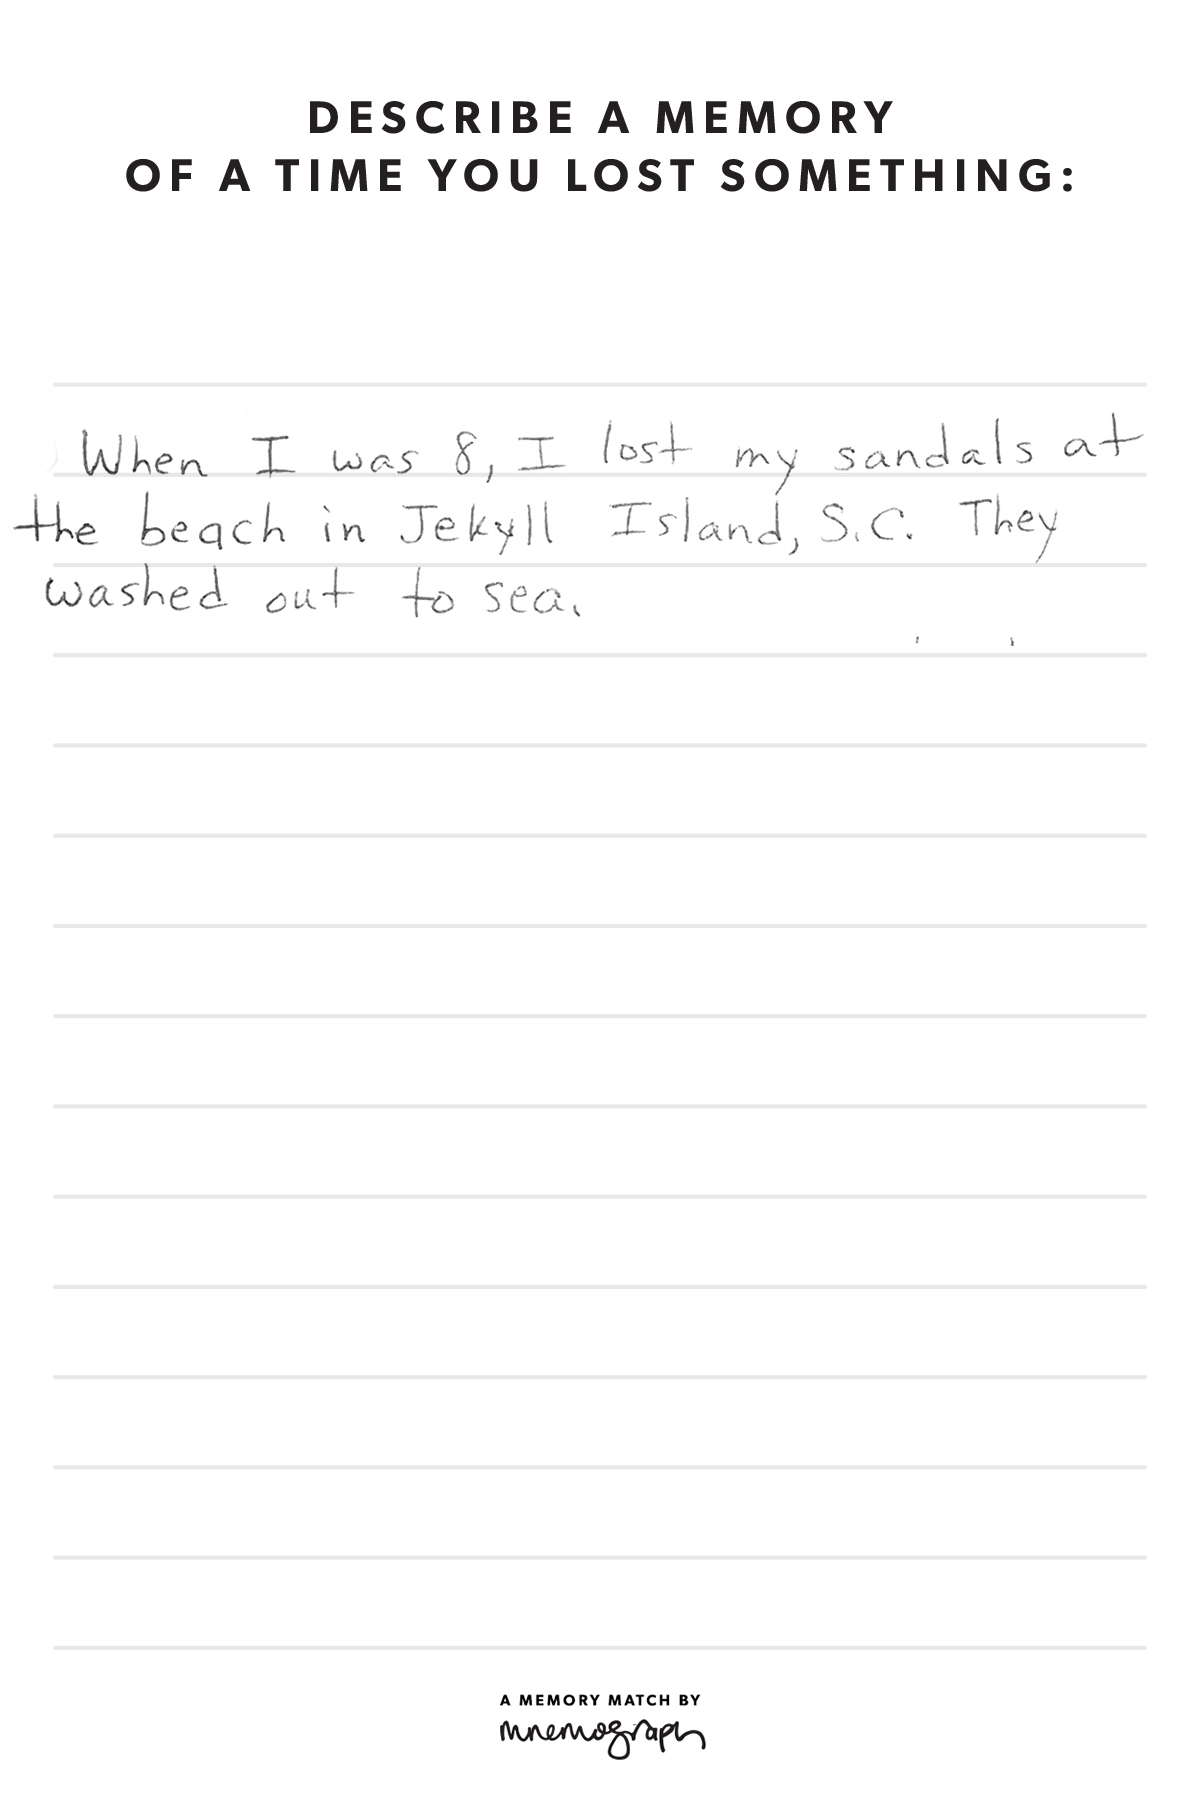 DESCRIBE A MEMORY
OF A TIME YOU LOST SOMETHING:
When I was 8, I lost my sandals at
the beach in Jekyll Island, S.C. They
washed out to sea.
A MEMORY MATCH BY
mnemograph